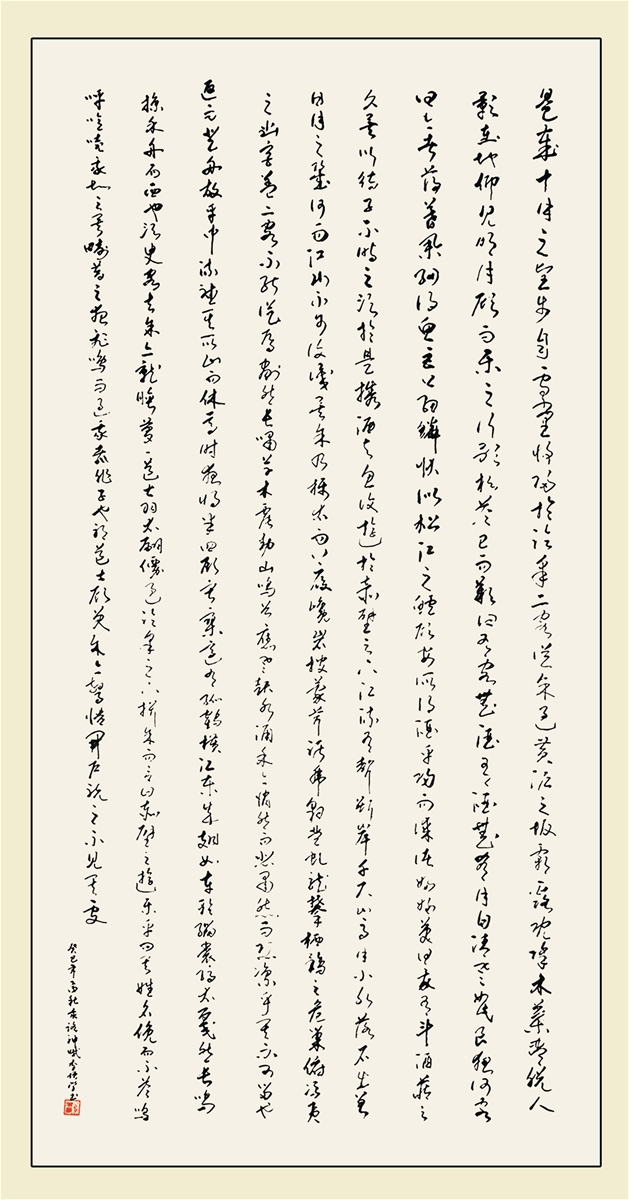 是歲十月之望步自雪堂將歸於臨皋二客從余過黃泥之坂霜露既降木葉盡脫人
影在地仰見明月顧而樂之行歌相答已而歎曰有客無酒有酒無肴月白風清如此良夜何客
曰今者薄暮舉網得魚巨口細鱗狀似松江之鱸顧安所得酒乎歸而謀諸婦婦曰我有斗酒藏之
久矣以待子不時之須於是攜酒與魚復遊於赤壁之下江流有聲斷岸千尺山高月小水落石出曾
日月之幾何而江山不可復識矣余乃攝衣而上履巉岩披蒙茸踞虎豹登虬龍攀栖鶻之危巢俯馮夷
之幽宮蓋二客不能從焉劃然長嘯草木震動山鳴谷應風起水涌余亦悄然而悲肅然而恐凜乎其不可留也
返而登舟放乎中流聽其所止而休焉時夜將半四顧寂寥適有孤鶴橫江東來翅如車輪玄裳縞衣戛然長鳴
掠余舟而西也須臾客去余亦就睡夢一道士羽衣翩僊過臨皋之下揖余而言曰赤壁之遊樂乎問其姓名俛而不答嗚
呼噫嘻我知之矣疇昔之夜飛鳴而過我者非子也耶道士顧笑余亦驚悟開戶視之不見其處
癸巳年高秋書